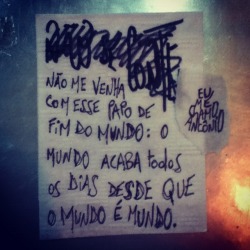 NÃO ME VENHA
COM ESSE PAPO DE
FIM DO MUNDO: O
MUNDO ACABA todos
OS DIAS DESDE QUE
O MUNDO É MUNDO.
EU
ME
CHAMO